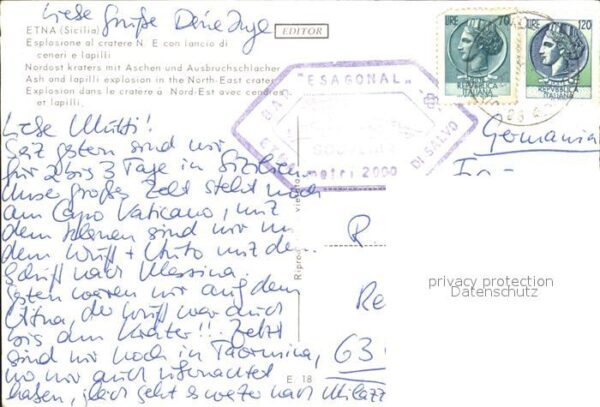 Liebe Grüße Deine Inge
ETNA (Sicilia)
EDITOR
Esplosione al cratere N. E con lancio di
ceneri e lapilli
Nordost kraters mit Aschen und Ausbruchschlacher
Ash and lapilli explosion in the North-East crater
Explosion dans le cratère à Nord-Est avec cendres
et lapilli.
LIRE 70
REPVBBLICA
ITALIANA
LIRE 120
REPVBBLICA
ITALIANA
"ESAGONAL"
DI SALVO
metri 2000
Germania
Liebe Mutti!
Seit gestern sind wir
für 2 bis 3 Tage in Sizilien.
Unser großes Zelt steht noch
am Capo Vaticano, mit
dem kleinen sind wir in
dem
Schiff nach Messina.
Gestern waren wir auf dem
Ätna, der war auch
bis dem Krater!! Jetzt
sind wir noch in Taormina,
wo wir auch übernachtet
haben, gleich geht's weiter nach Milazz
R
Re
63
E 18
privacy protection
Datenschutz